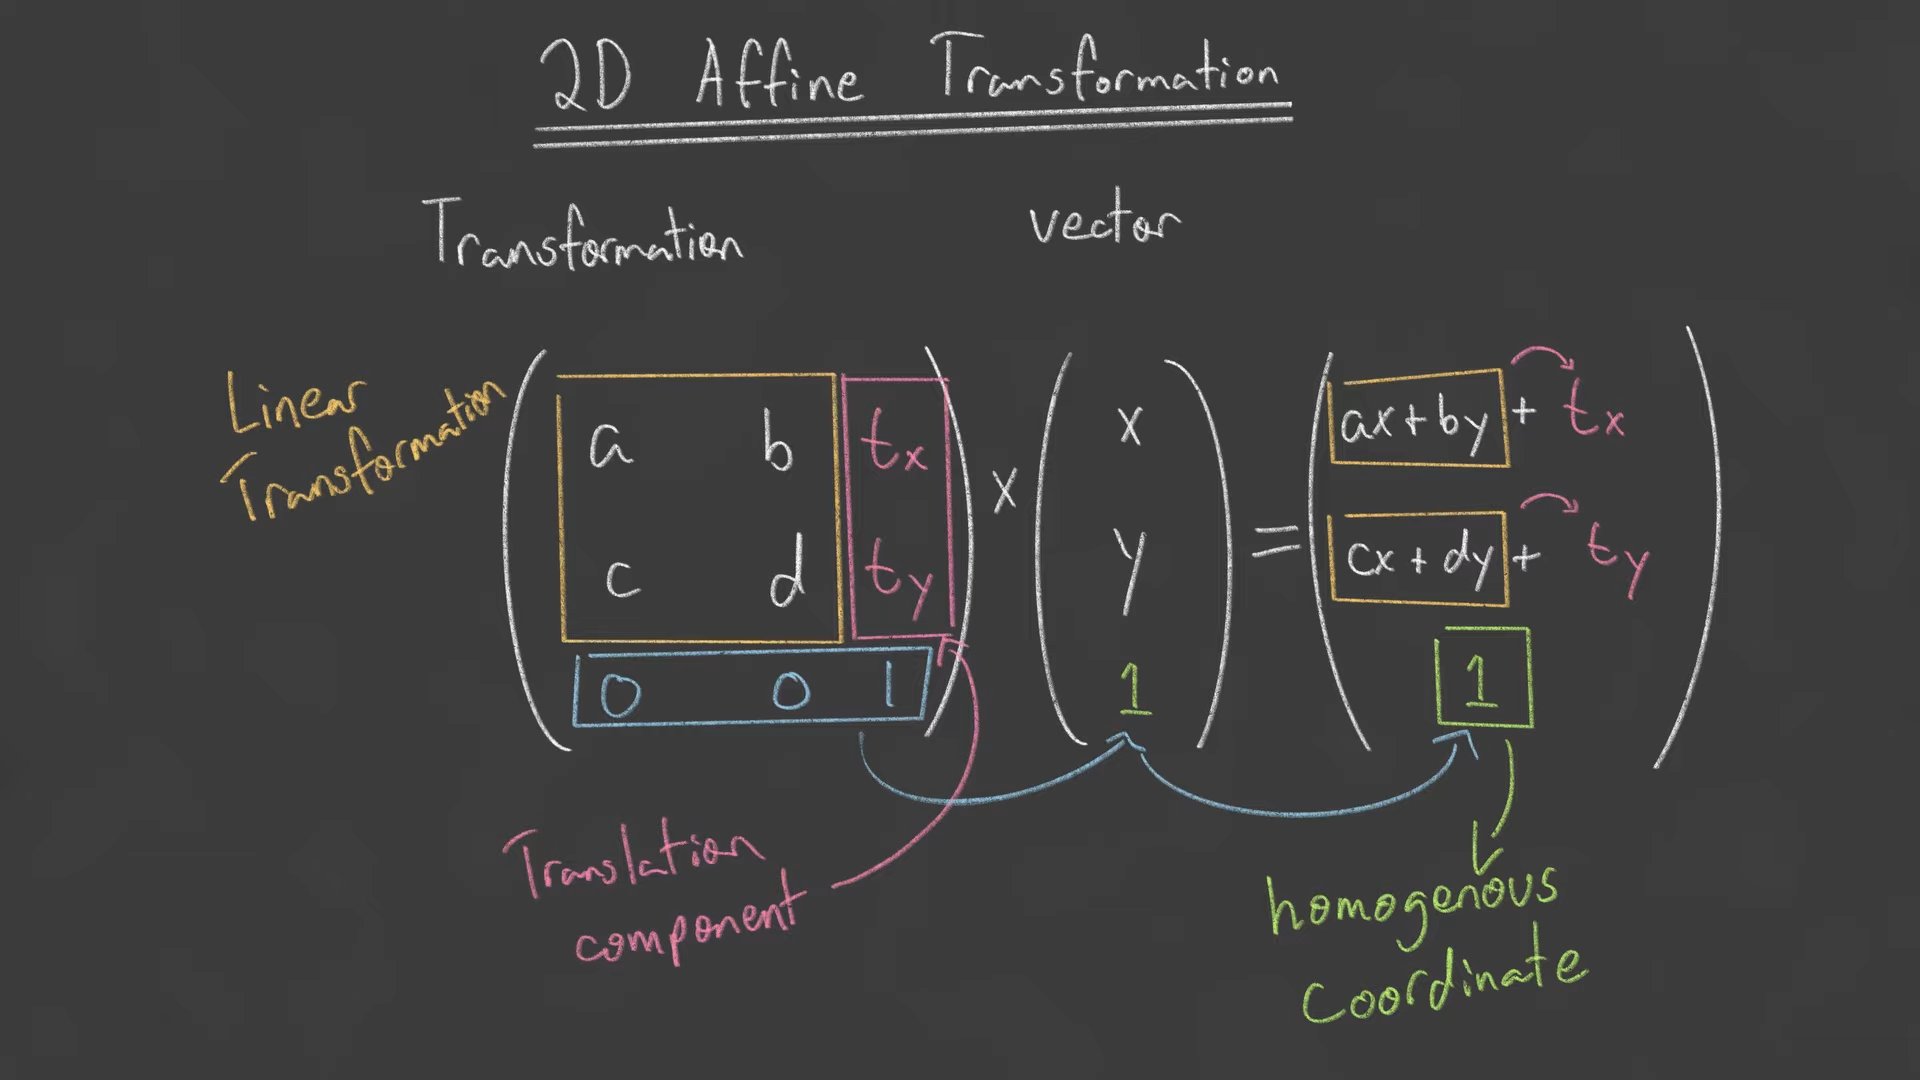 2D Affine Transformation
Transformation
vector
Linear
Transformation
a b tx
c d ty
0 0 1
×
x
y
1
=
ax+by + tx
cx + dy + ty
1
Translation
component
homogenous
coordinate